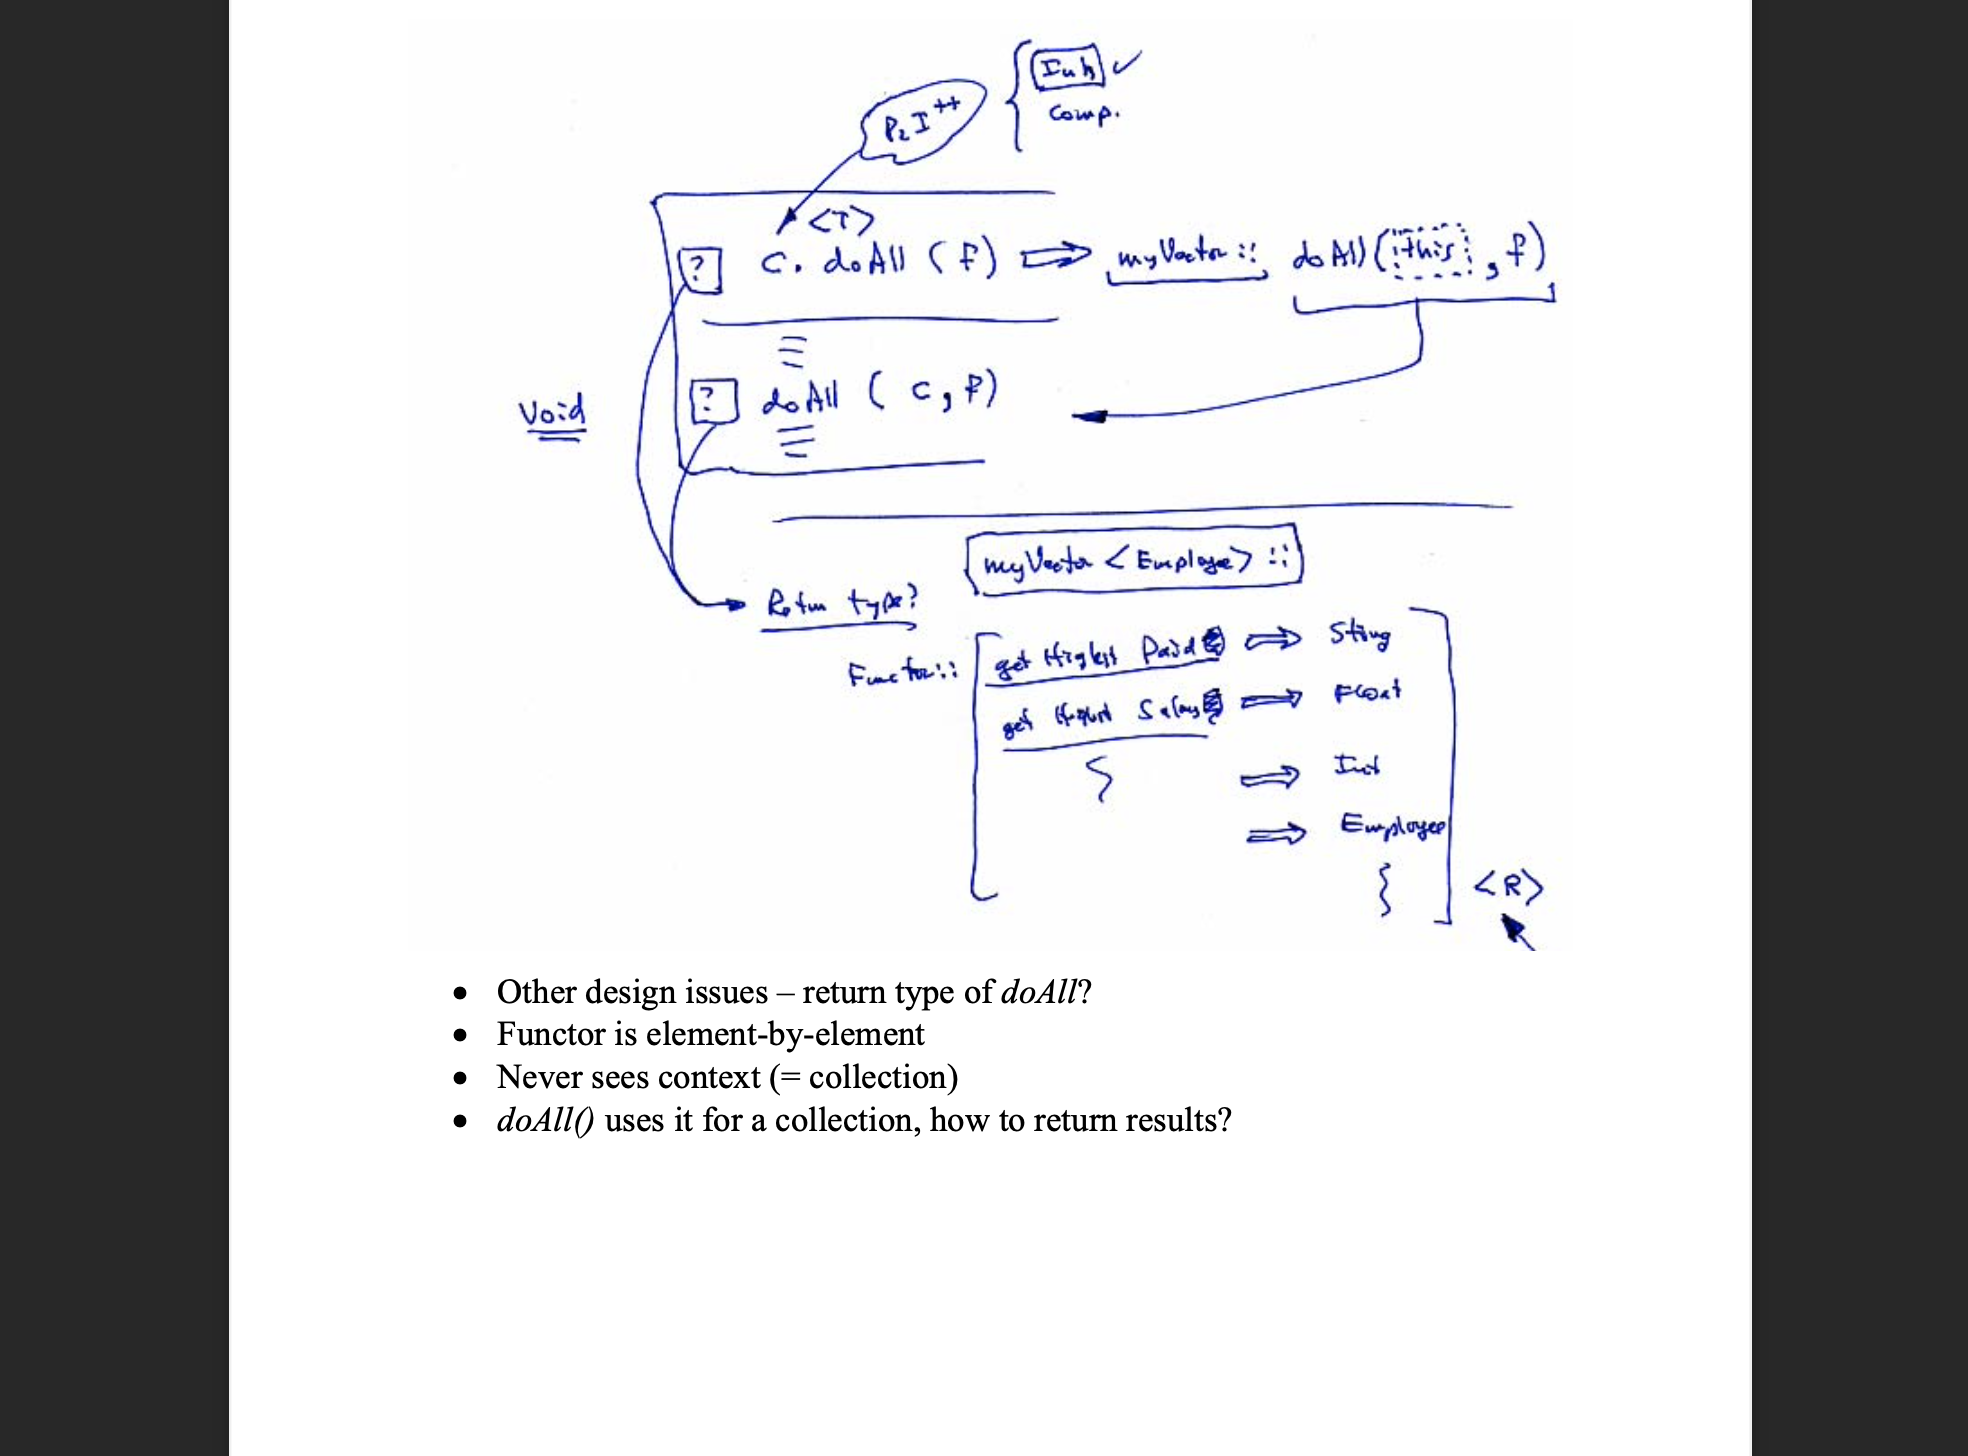 Inh ✓
Comp.
P2I++
<T>
? c. doAll (f) ⇒ myVector :: doAll (this, f)
? doAll ( c, f)
Void
myVector <Employee> ::
Return type?
Functor:: get Highest Paid ⇒ String
get Highest Salary ⇒ Float
⇒ Int
⇒ Employee
<R>
• Other design issues – return type of doAll?
• Functor is element-by-element
• Never sees context (= collection)
• doAll() uses it for a collection, how to return results?